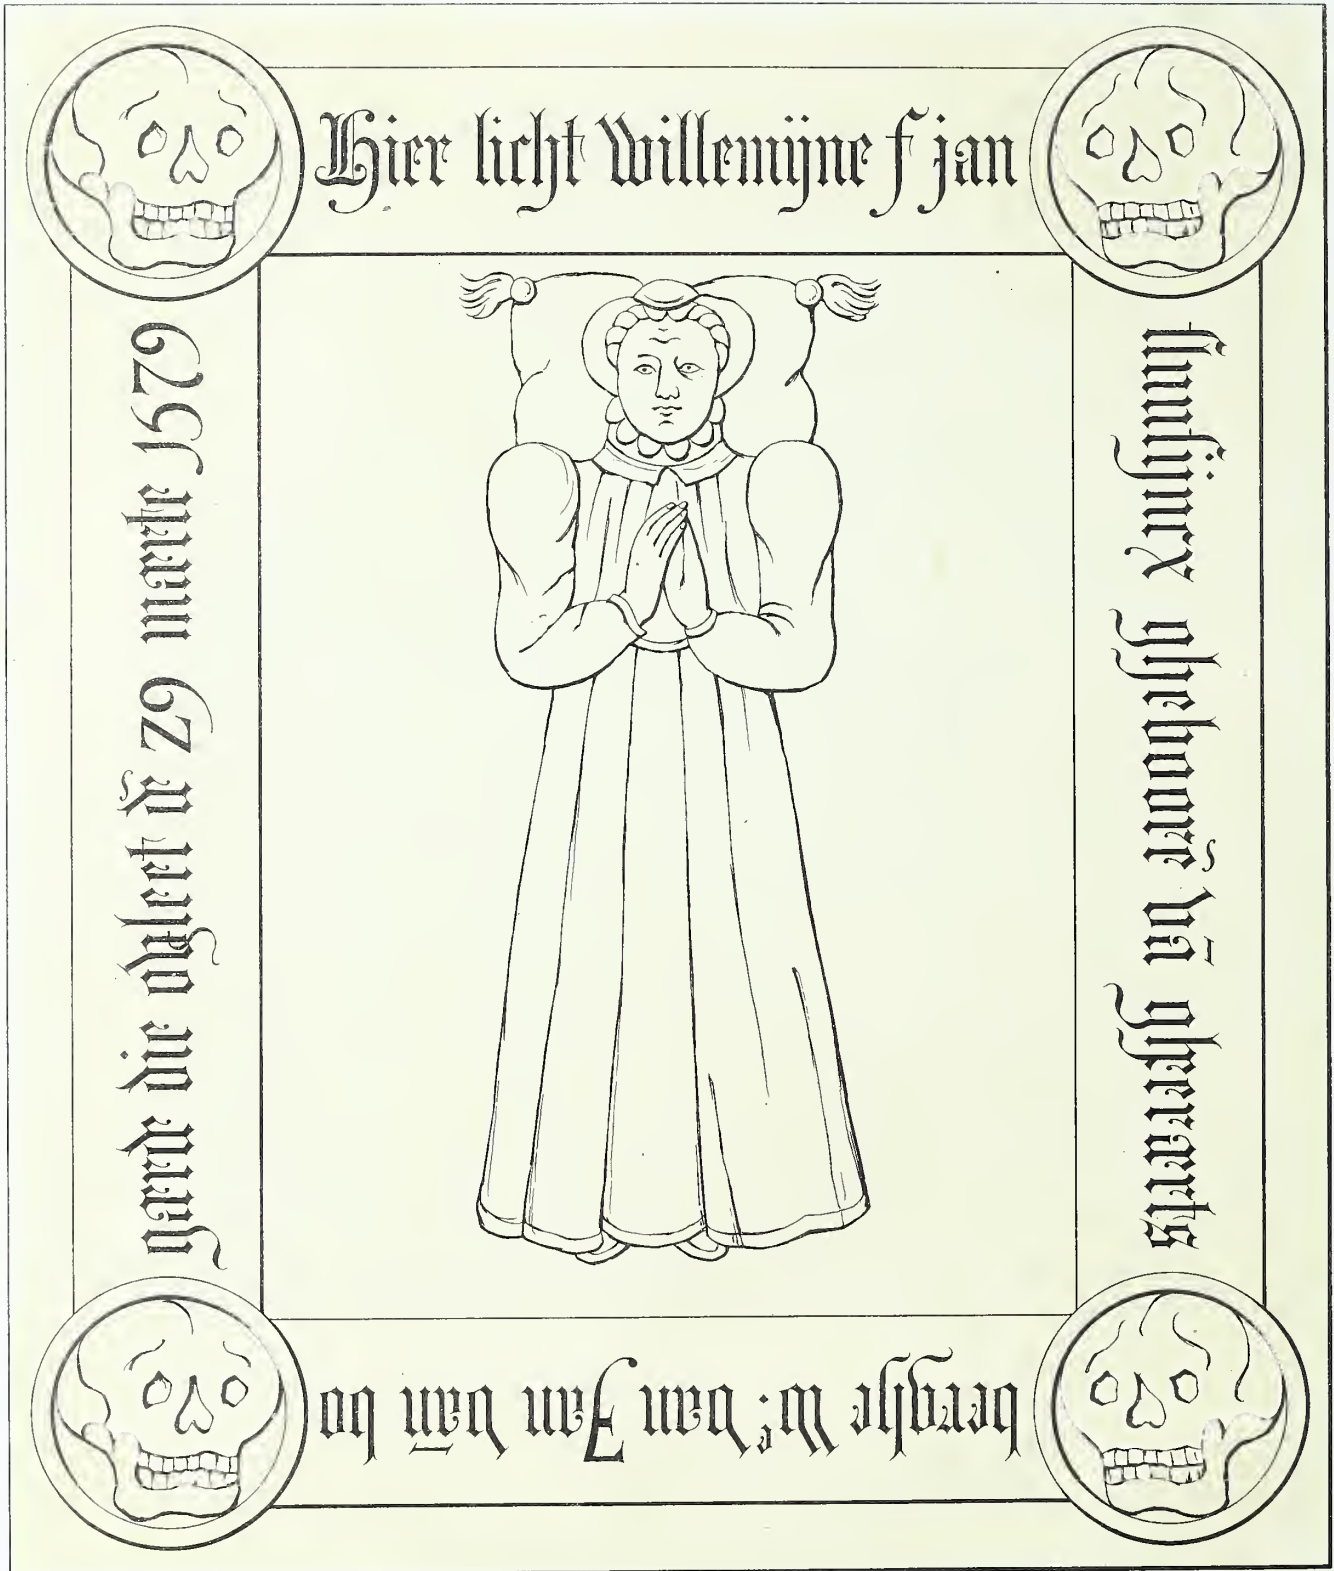 Hier licht Willemijne f jan
gheboorē vā gheraerts
berghe We: van Jan vān bo
gaerde die ov̄leet dē 29 maerte 1579